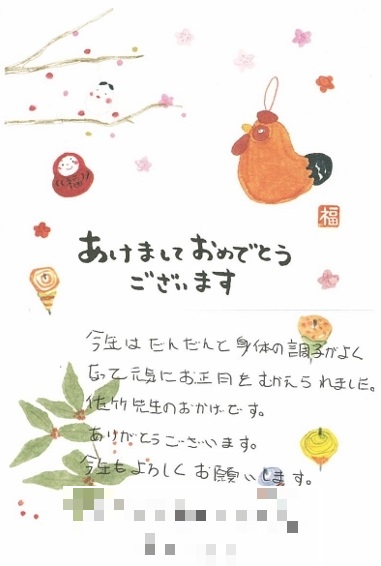 福
あけましておめでとう
ございます
今年はだんだんと身体の調子がよく
なって元気にお正月をむかえられました。
佐竹先生のおかげです。
ありがとうございます。
今年もよろしくお願いします。